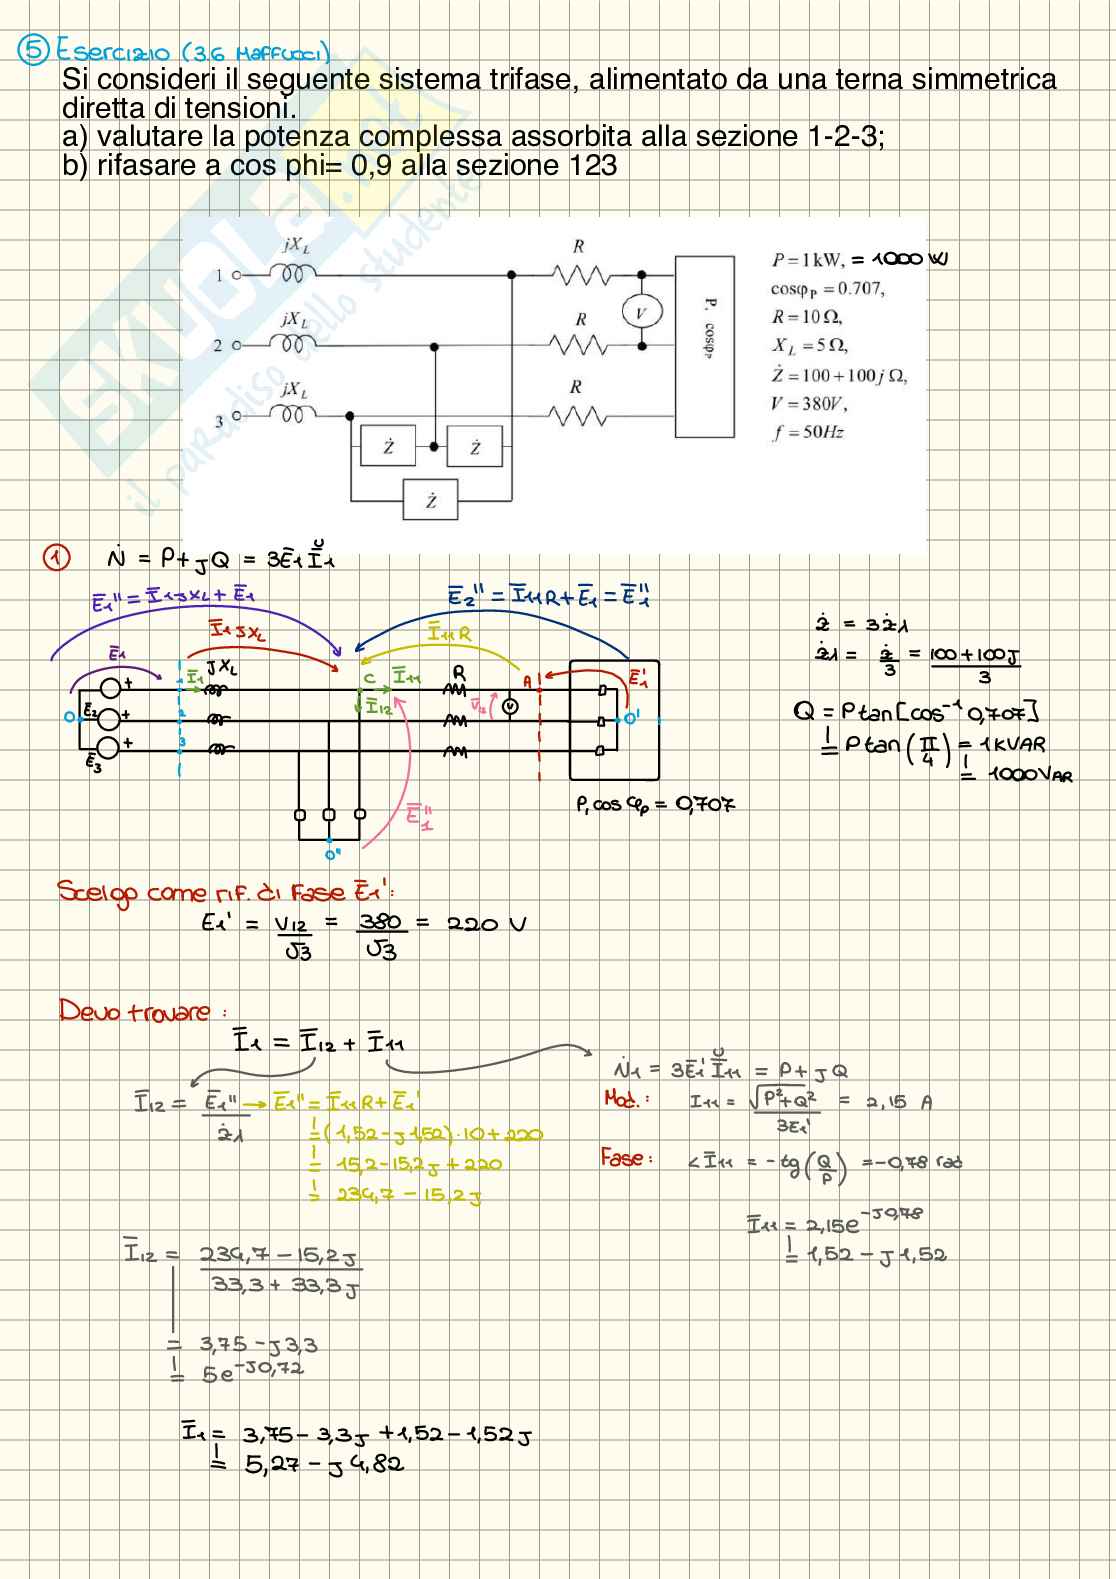 ⑤ Esercizio (3.6 Maffucci)
Si consideri il seguente sistema trifase, alimentato da una terna simmetrica
diretta di tensioni.
a) valutare la potenza complessa assorbita alla sezione 1-2-3;
b) rifasare a cos phi= 0,9 alla sezione 123
SKUOLA.net
il paradiso dello studente
jX_L
R
1
jX_L
R
V
2
jX_L
R
3
P, cosφ_P
Ż
Ż
Ż
P = 1 kW, = 1000 W
cosφ_P = 0.707,
R = 10 Ω,
X_L = 5 Ω,
Ż = 100 + 100j Ω,
V = 380V,
f = 50Hz
① Ṅ = P + jQ = 3Ē₁Ǐ₁
Ē₁'' = Ī₁jX_L + Ē₁
Ē₂'' = Ī₁₁R + Ē₁ = Ē₁''
Ī₁jX_L
Ī₁₁R
Ē₁
1
Ī₁
jX_L
C
Ī₁₁
R
A
Ē₁'
Ī₁₂
V̄₁₂
V
O
Ē₂
2
O'
Ē₃
3
Ē₁''
O''
P, cosφ_p = 0,707
ż = 3żλ
żλ = ż/3 = (100+100j)/3
Q = P tan[cos⁻¹ 0,707]
= P tan(π/4) = 1kVAR
= 1000 VAR
Scelgo come rif. di fase Ē₁':
E₁' = V₁₂/√3 = 380/√3 = 220 V
Devo trovare:
Ī₁ = Ī₁₂ + Ī₁₁
Ī₁₂ = Ē₁''/żλ → Ē₁'' = Ī₁₁R + Ē₁'
= (1,52 - j1,52)·10 + 220
= 15,2 - 15,2j + 220
= 234,7 - 15,2j
Ṅ₁ = 3Ē₁'Ǐ₁₁ = P + jQ
Mod.: I₁₁ = √(P²+Q²)/3E₁' = 2,15 A
Fase: ∠Ī₁₁ = -tg(Q/P) = -0,78 rad
Ī₁₁ = 2,15e^(-j0,78)
= 1,52 - j1,52
Ī₁₂ = (234,7 - 15,2j)/(33,3 + 33,3j)
= 3,75 - j3,3
= 5e^(-j0,72)
Ī₁ = 3,75 - 3,3j + 1,52 - 1,52j
= 5,27 - j4,82